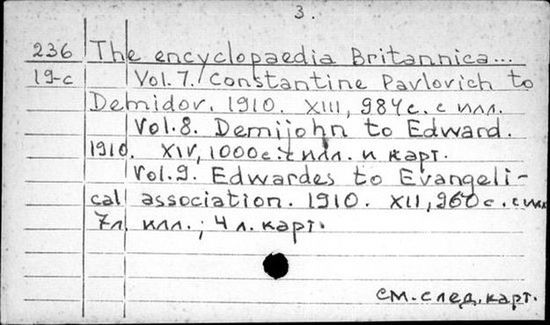 3.
236 The encyclopaedia Britannica...
19-c Vol.7. Constantine Pavlovich to
Demidov. 1910. XIII, 984 с. с илл.
Vol.8. Demijohn to Edward.
1910. XIV, 1000 с. с илл. и карт.
Vol.9. Edwardes to Evangeli-
cal association. 1910. XII, 960 с. с илл
7л. илл.; 4 л. карт.
см. след. карт.